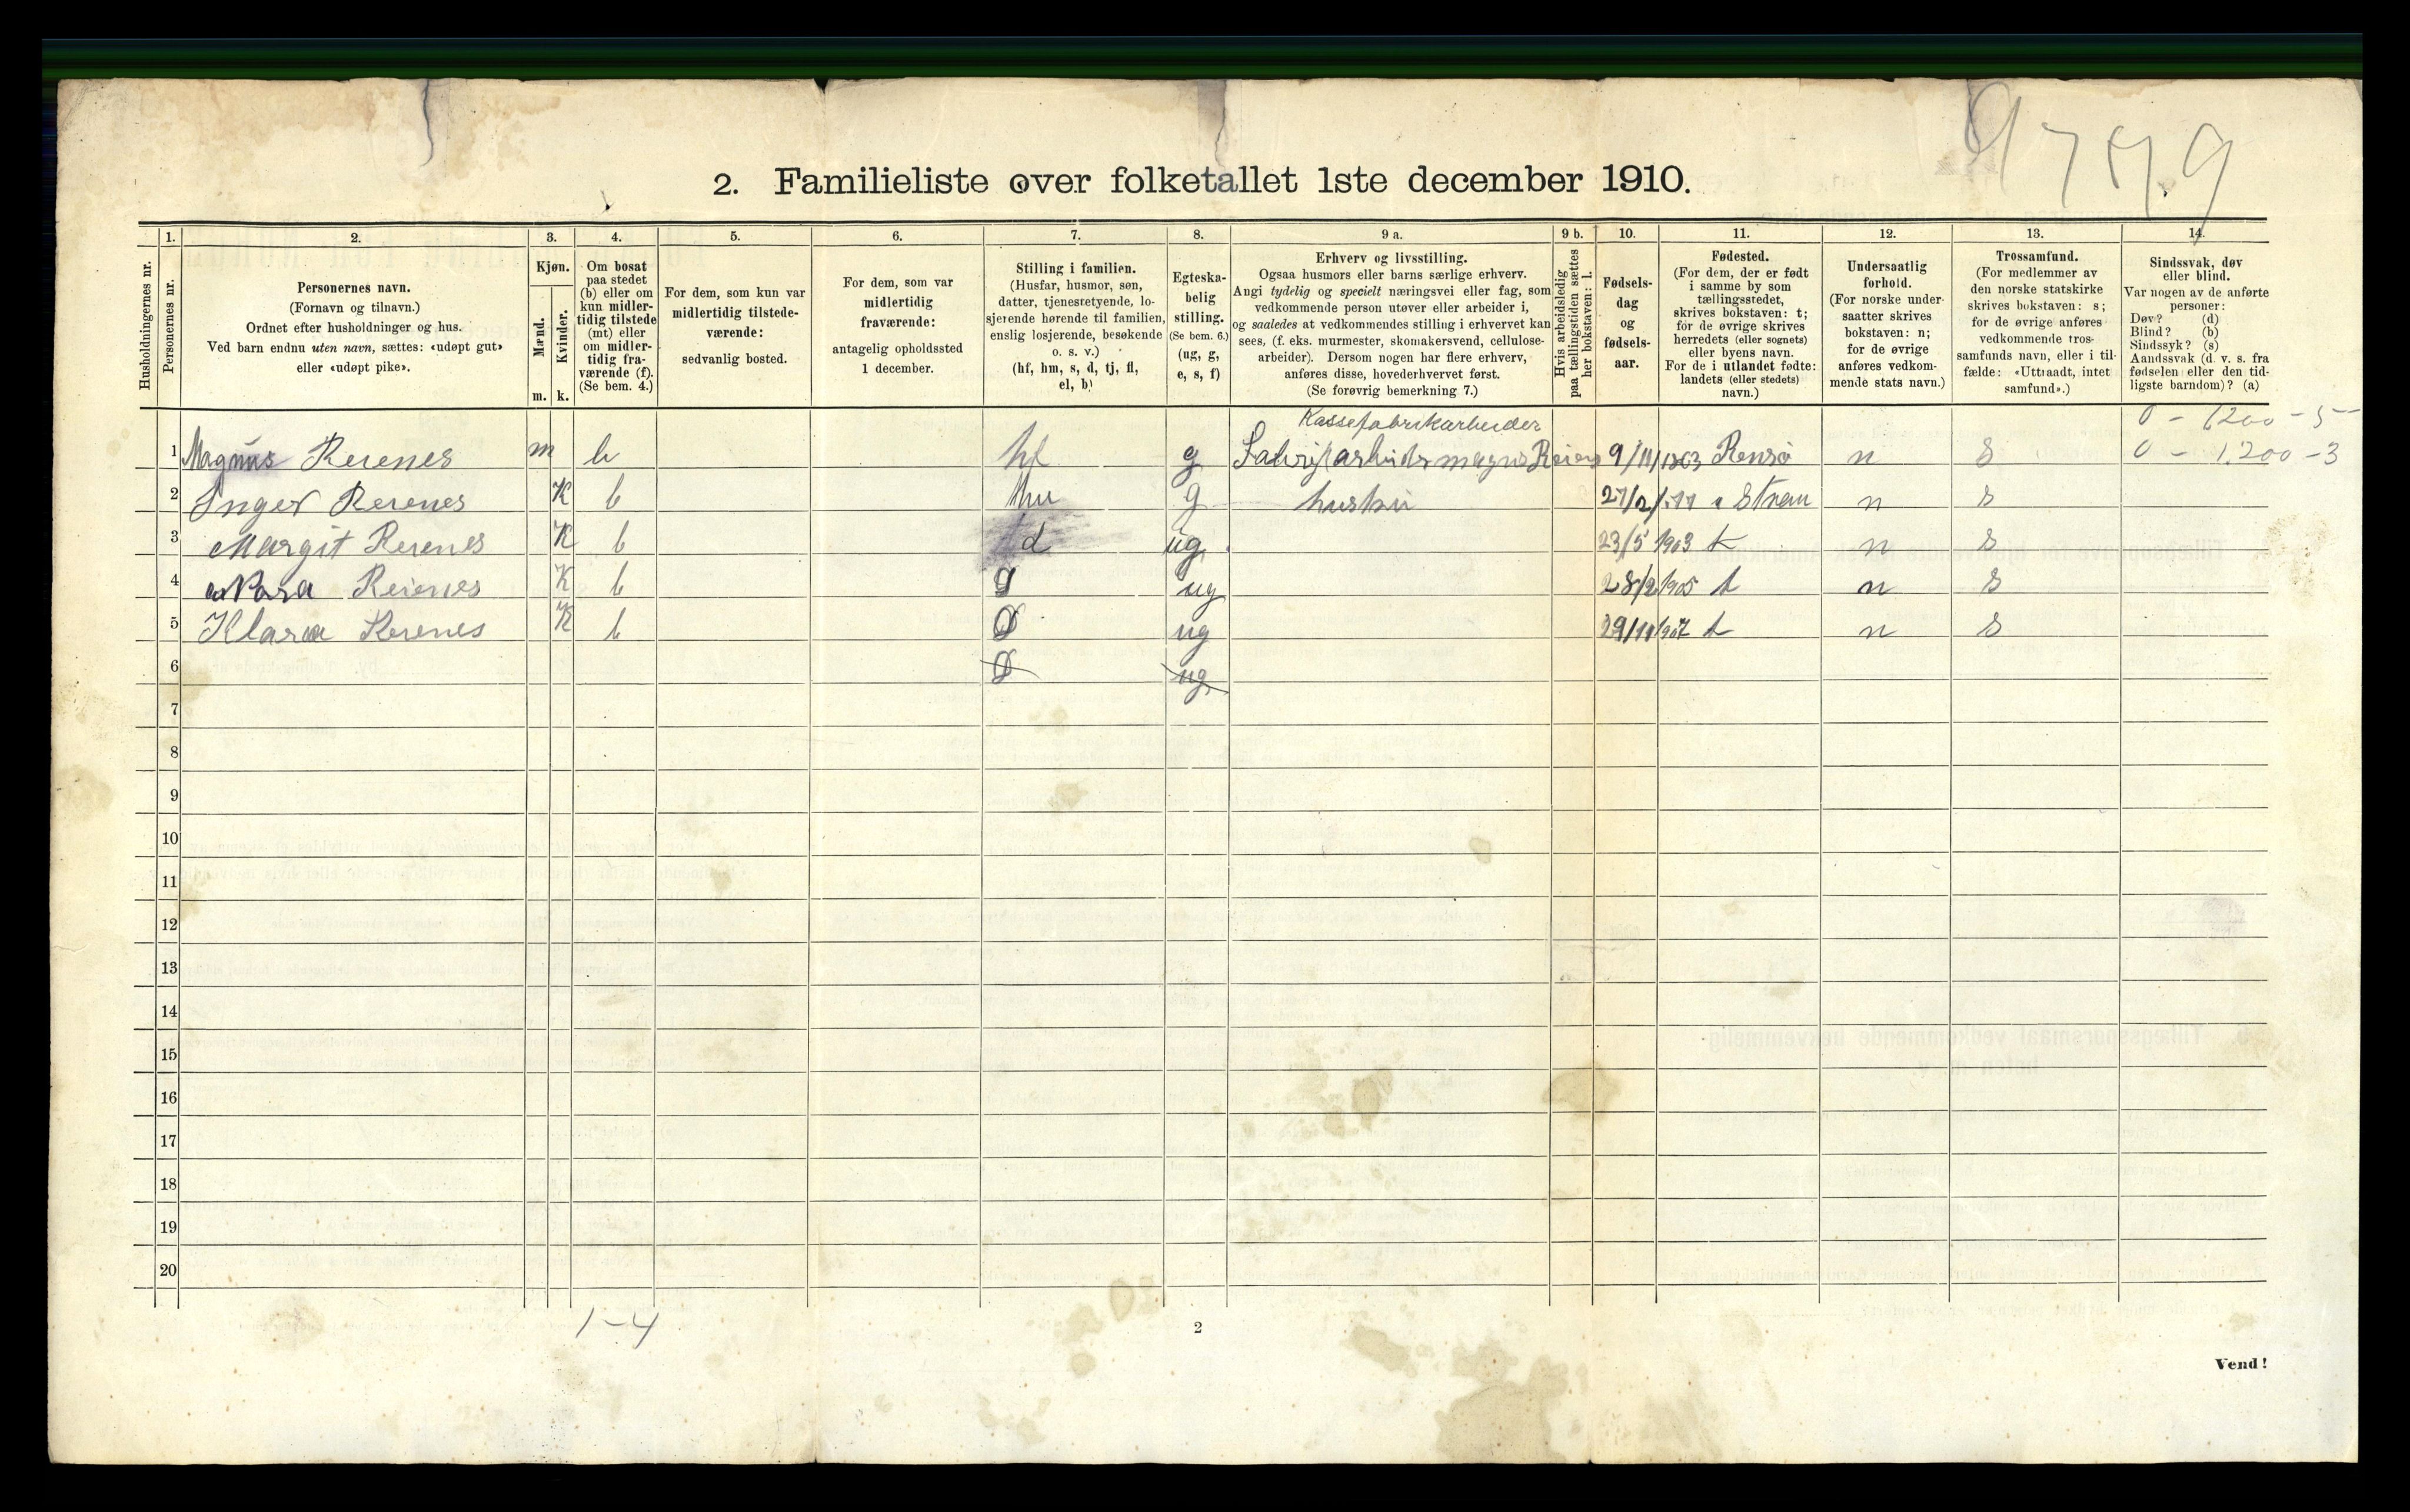 9749
2. Familieliste over folketallet 1ste december 1910.
Husholdningernes nr.
1.
Personernes nr.
2.
Personernes navn.
(Fornavn og tilnavn.)
Ordnet efter husholdninger og hus.
Ved barn endnu uten navn, sættes: «udøpt gut»
eller «udøpt pike».
3.
Kjøn.
Mænd.
Kvinder.
m. k.
4.
Om bosat
paa stedet
(b) eller om
kun midler-
tidig tilstede
(mt) eller
om midler-
tidig fra-
værende (f).
(Se bem. 4.)
5.
For dem, som kun var
midlertidig tilstede-
værende:
sedvanlig bosted.
6.
For dem, som var
midlertidig
fraværende:
antagelig opholdssted
1 december.
7.
Stilling i familien.
(Husfar, husmor, søn,
datter, tjenestetyende, lo-
sjerende hørende til familien,
enslig losjerende, besøkende
o. s. v.)
(hf, hm, s, d, tj, fl,
el, b)
8.
Egteska-
belig
stilling.
(Se bem. 6.)
(ug, g,
e, s, f)
9 a.
Erhverv og livsstilling.
Ogsaa husmors eller barns særlige erhverv.
Angi tydelig og specielt næringsvei eller fag, som
vedkommende person utøver eller arbeider i,
og saaledes at vedkommendes stilling i erhvervet kan
sees, (f. eks. murmester, skomakersvend, cellulose-
arbeider). Dersom nogen har flere erhverv,
anføres disse, hovederhvervet først.
(Se forøvrig bemerkning 7.)
9 b.
Hvis arbeidsledig
paa tællingstiden sættes
her bokstaven: l.
10.
Fødsels-
dag
og
fødsels-
aar.
11.
Fødested.
(For dem, der er født
i samme by som
tællingsstedet,
skrives bokstaven: t;
for de øvrige skrives
herredets (eller sognets)
eller byens navn.
For de i utlandet fødte:
landets (eller stedets)
navn.)
12.
Undersaatlig
forhold.
(For norske under-
saatter skrives
bokstaven: n;
for de øvrige
anføres vedkom-
mende stats navn.)
13.
Trossamfund.
(For medlemmer av
den norske statskirke
skrives bokstaven: s;
for de øvrige anføres
vedkommende tros-
samfunds navn, eller i til-
fælde: «Uttraadt, intet
samfund».)
14.
Sindssvak, døv
eller blind.
Var nogen av de anførte
personer:
Døv? (d)
Blind? (b)
Sindssyk? (s)
Aandssvak (d. v. s. fra
fødselen eller den tid-
ligste barndom)? (a)
Kassefabrikarbeider 0 - 1200 - 5
1 Magnus Reienes m b hf g Fabrikarbeider magnus 9/11 1863 Rensø n s 0 - 1.200 - 3
2 Inger Reienes K b hu g 27/2 n s
3 Margit Reienes K b d ug 23/5 1903 t n s
4 Nora Reienes K b d ug 28/2 1905 t n s
5 Klara Reienes K b D ug 29/11 1907 t n s
6 D ug
7
8
9
10
11
12
13
14
15
16
17
18
19
20
1-4
2
Vend!